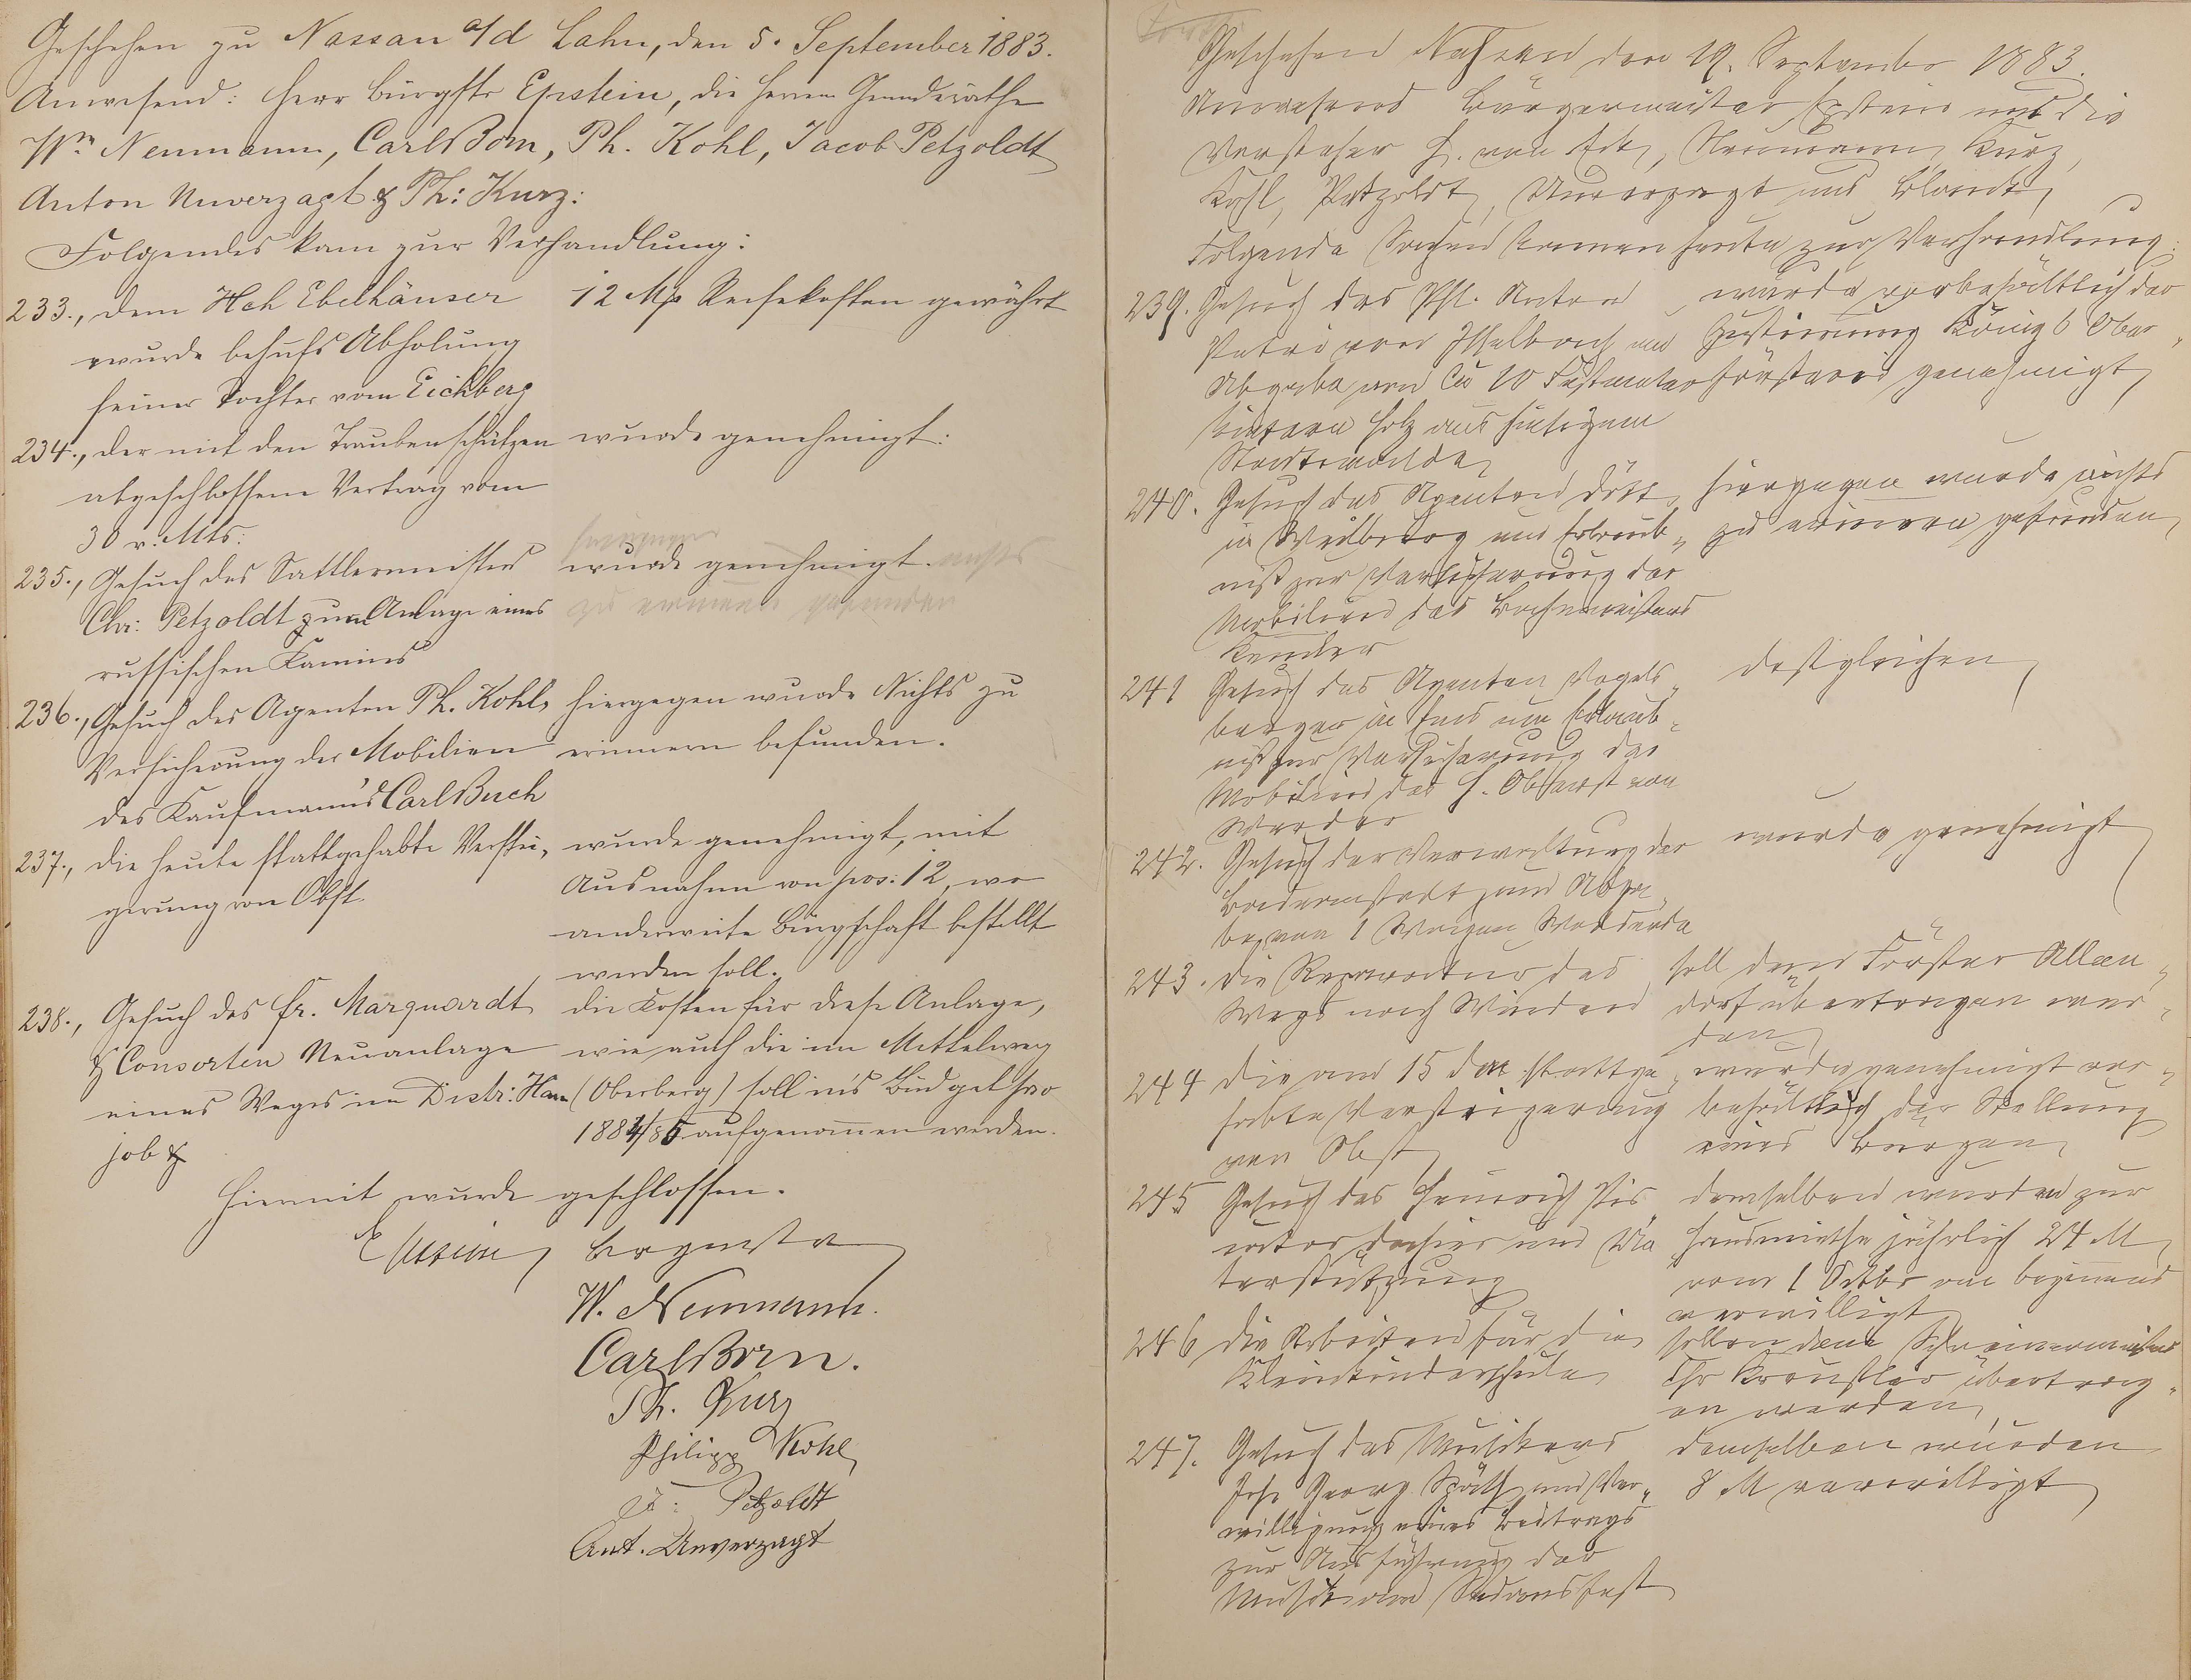 Geschehen zu Nassau a/d Lahn, den 5. September 1883.
Anwesend: Herr Bürgstr Epstein, die Herren Gemeinderäthe
Wm Neumann, Carl Born, Ph. Kohl, Jacob Petzoldt
Anton Unverzagt & Ph: Kurz:
Folgendes kam zur Verhandlung:
233., dem Hch Ebelhäuser
wurde behufs Abholung
seiner Tochter vom Eichberg
12 Mk Reisekosten gewährt
234., der mit den Traubenschützen
abgeschlossene Vertrag vom
30 v. Mts:
wurde genehmigt:
235., Gesuch des Sattlermeisters
Chr: Petzoldt zum Anlage eines
russischen Kamins
wurde genehmigt. nichts
zu erinnern gefunden
236., Gesuch des Agenten Ph. Kohl,
Versicherung der Mobilien
des Kaufmann's Carl Buch
hiergegen wurde Nichts zu
erinnern befunden.
237., die heute stattgehabte Verstei,
gerung von Obst.
wurde genehmigt, mit
Ausnahme von pos: 12, wo
anderweite Bürgschaft bestellt
werden soll.
238., Gesuch des Fr. Marquardt
& Consorten Neuanlage
eines Weges im Distr: Han
job &
die Kosten für diese Anlage,
wie auch die im Mittelweg
(Oberberg) soll in's Budget pro
1884/85 aufgenommen werden.
Hiermit wurde geschlossen.
Epstein Brgmstr
W. Neumann.
Carl Born.
Ph. Kurz
Philipp Kohl
J: Petzoldt
Ant. Unverzagt
Geschehen Nassau den 19. September 1883.
Anwesend Bürgermeister Epstein und die
Vorsteher H. von Eck, Neumann, Kurz,
Kohl, Petzoldt, Unverzagt und
Folgende Sachen kamen heute zur Verhandlung:
239. Gesuch des Phl. Anton
Petri von Isselbach um
Abgabe von Ca 10 Festmeter
Holz aus hiesigem
Stadtwalde
wurde vorbehaltlich der
Zustimmung Königl Ober„
försterei genehmigt
240. Gesuch des Agenten Dött
in Weilburg um Erlaub„
niß zur Versicherung der
Mobilien des Bahnmeisters
hiergegen wurde nichts
zu erinnern gefunden
241 Gesuch des Agenten Vogels„
berger in Ems um Erlaub„
niß zur Versicherung der
Mobilien des H. Oberst von
Werder
desgleichen
242. Gesuch der Verwaltung der
Badeanstalt um Abga„
be von 1 Wagen
wurde genehmigt
243. Die Reparatur des
Wegs nach Winden
soll dem Förster Allen„
dorf übertragen wer„
den
244 Die am 15 d M stattge„
habte Versteigerung
von Obst
wurde genehmigt vor„
behältlich der Stellung
eines Bürgen
245 Gesuch des Heinrich
dahier um Un
terstützung
demselben wurden zur
Hausmiethe jährlich 24 M
vom 1 Octbr an beginnend
verwilligt
246 Die Arbeiten für die
Kleinkinderschule
sollen dem Schreinermeister
Chr übertrag„
en werden
247. Gesuch des Musikers
Joh Georg Späth um Ver„
willigung eines Beitrags
zur Ausführung der
Musik am Sedansfest
demselben wurden
8 M verwilligt